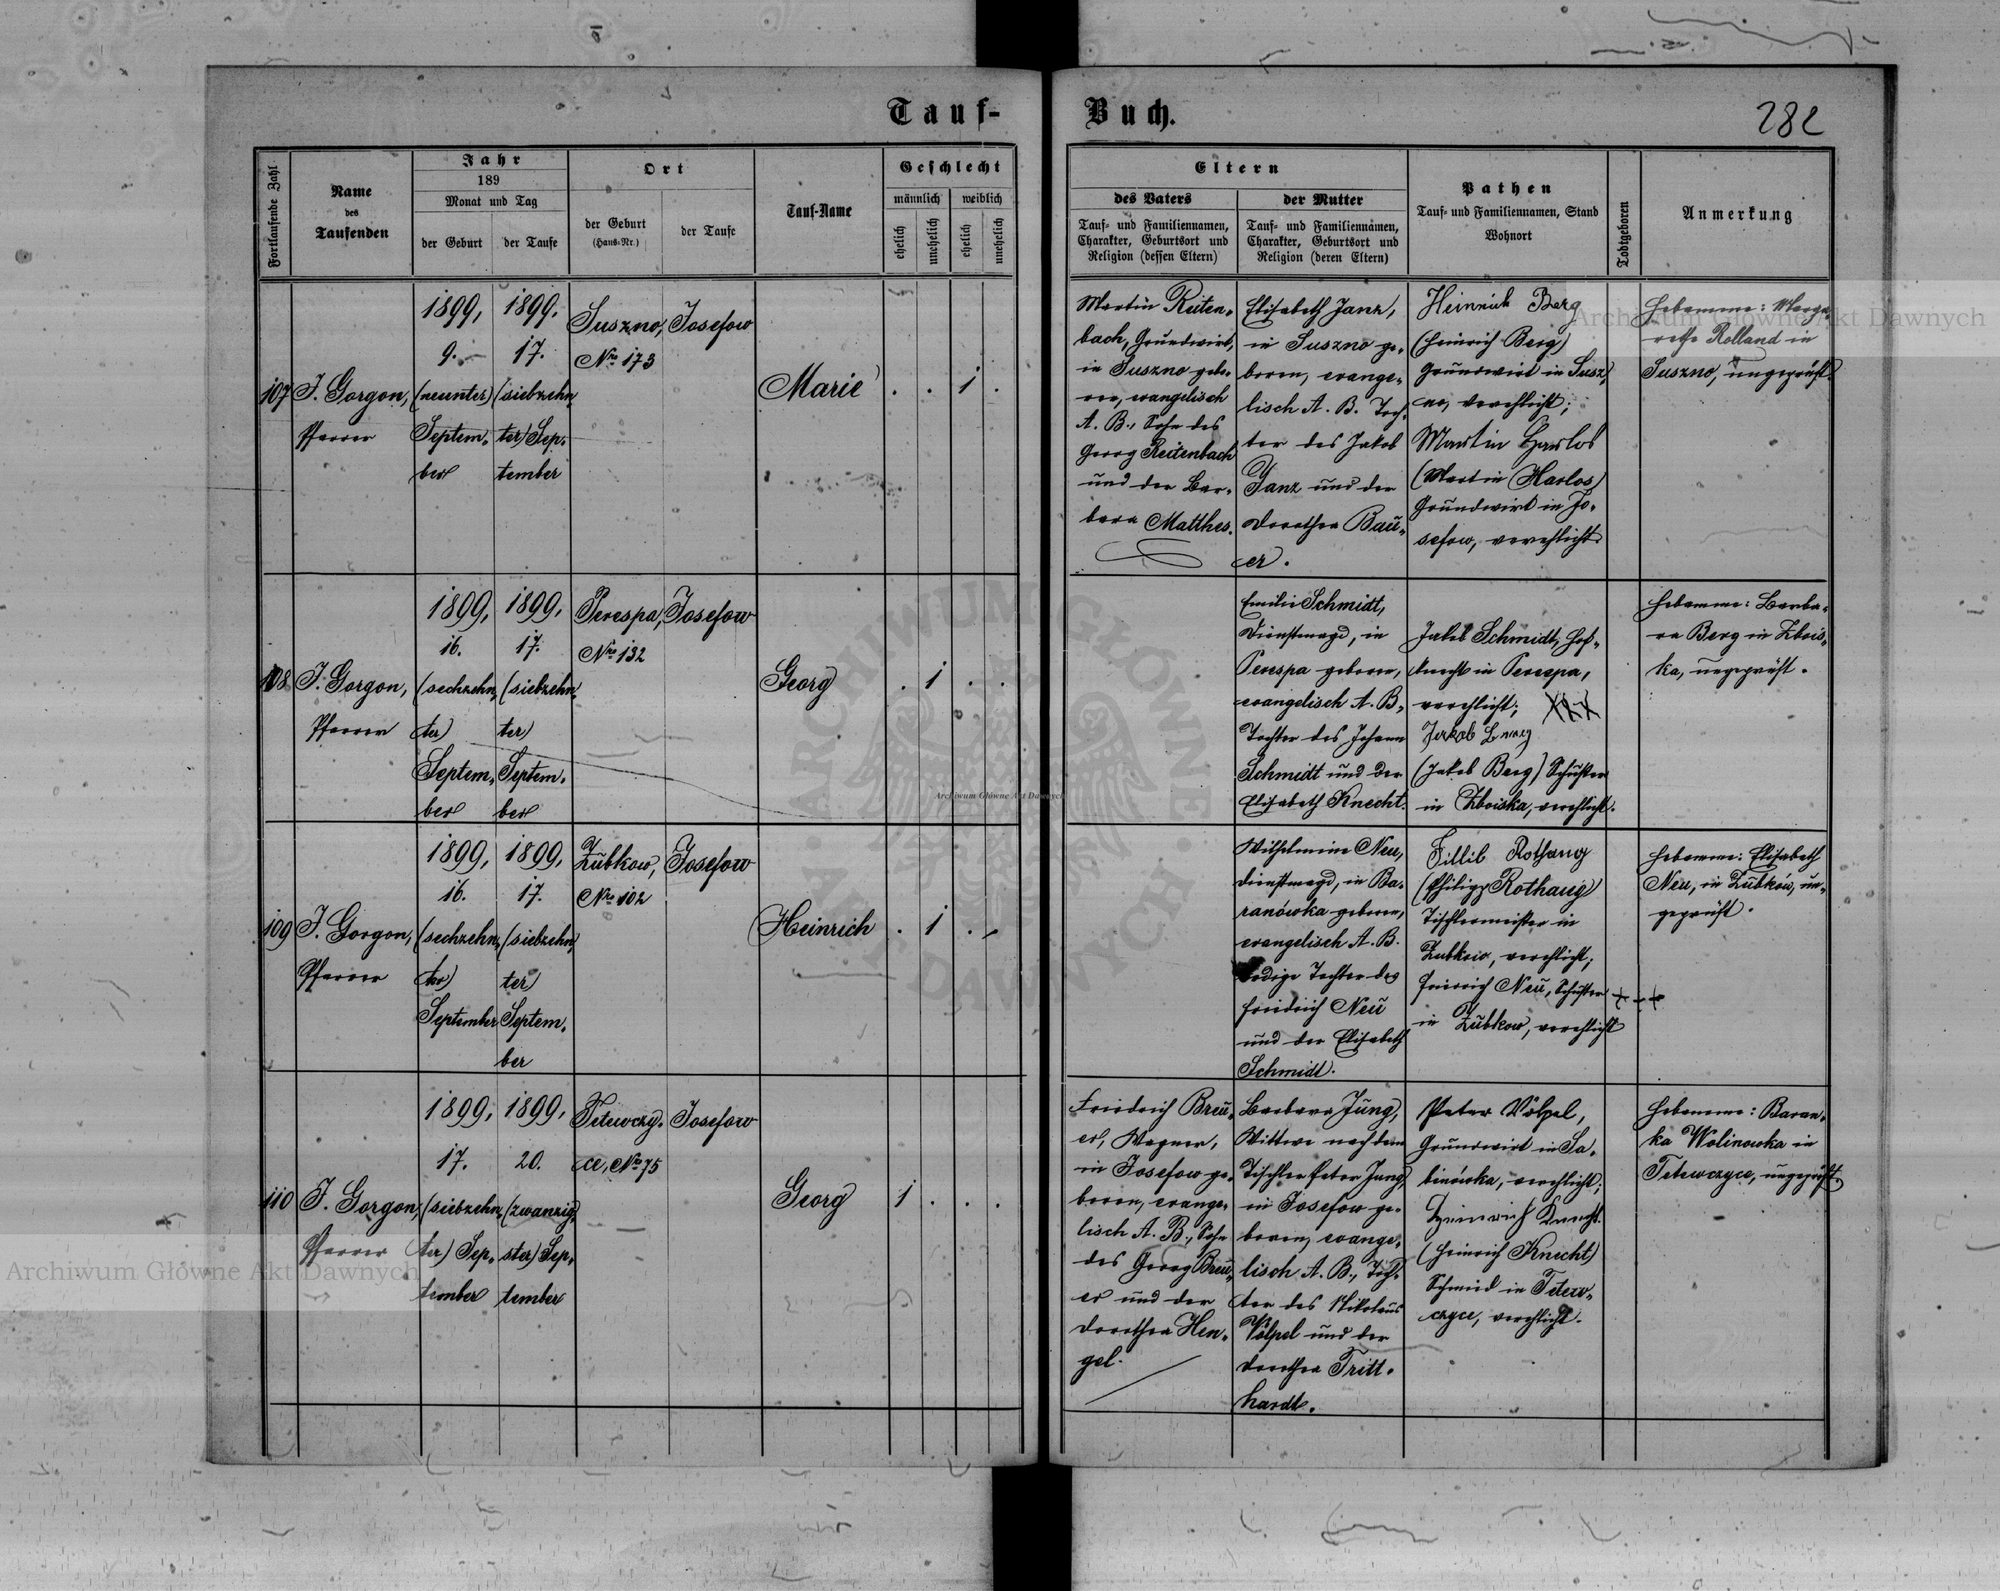 Tauf-Buch.
282
Fortlaufende Zahl
Name
des
Taufenden
Jahr
189
Monat und Tag
der Geburt
der Taufe
Ort
der Geburt
(Haus-Nr.)
der Taufe
Tauf-Name
Geschlecht
männlich
weiblich
ehelich
unehelich
ehelich
unehelich
Eltern
des Vaters
Tauf- und Familiennamen,
Charakter, Geburtsort und
Religion (dessen Eltern)
der Mutter
Tauf- und Familiennamen,
Charakter, Geburtsort und
Religion (deren Eltern)
Pathen
Tauf- und Familiennamen, Stand
Wohnort
Todtgeboren
Anmerkung
107
J. Gorgon,
Pfarrer
1899,
9.
(neunter)
Septem-
ber
1899,
17.
(siebzehn-
ter) Sep-
tember
Suszno,
No 173
Josefow
Marie
. . 1 .
Martin Reiten-
bach, Grundwirt,
in Suszno gebo-
ren, evangelisch
A. B., Sohn des
Georg Reitenbach
und der Bar-
bara Matthes.
Elisabeth Janz,
in Suszno ge-
boren, evange-
lisch A. B. Toch-
ter des Jakob
Janz und der
Dorothea Bau-
er.
Heinrich Berg
(Heinrich Berg)
Grundwirt in Susz-
no, verehlicht;
Martin Harlos
(Martin Harlos)
Grundwirt in Jo-
sefow, verehlicht.
Hebamme: Marga-
rethe Rolland in
Suszno, ungeprüft.
108
J. Gorgon,
Pfarrer
1899,
16.
(sechzehn-
ter)
Septem-
ber
1899,
17.
(siebzehn-
ter)
Septem-
ber
Perespa,
No 132
Josefow
Georg
. 1 . .
Emilie Schmidt,
Dienstmagd, in
Perespa geboren,
evangelisch A. B.,
Tochter des Johann
Schmidt und der
Elisabeth Knecht.
Jakob Schmidt, Hof-
knecht in Perespa,
verehlicht; XXX
Jakob Berg
(Jakob Berg) Schuster
in Zboiska, verehlicht.
Hebamme: Barba-
ra Berg in Zbois-
ka, ungeprüft.
109
J. Gorgon,
Pfarrer
1899,
16.
(sechzehn-
ter)
September
1899,
17.
(siebzehn-
ter)
Septem-
ber
Zubkow,
No 102
Josefow
Heinrich
. 1 . .
Wilhelmine Neu,
Dienstmagd, in Ba-
ranówka geboren,
evangelisch A. B.
ledige Tochter des
Friedrich Neu
und der Elisabeth
Schmidt.
Fillib Rothaug
(Philipp Rothaug)
Tischlermeister in
Zubkow, verehlicht;
Friedrich Neu, Schuster +++
in Zubkow, verehlicht
Hebamme: Elisabeth
Neu, in Zubków, un-
geprüft.
110
J. Gorgon,
Pfarrer
1899,
17.
(siebzehn-
ter) Sep-
tember
1899,
20.
(zwanzig-
ster) Sep-
tember
Tetewczy-
ce, No 75
Josefow
Georg
1 . . .
Friedrich Breu-
er, Wagner,
in Josefow ge-
boren, evange-
lisch A. B., Sohn
des Georg Breu-
er und der
Dorothea Hen-
gel.
Barbara Jung,
Wittwe nach dem
Tischler Peter Jung,
in Josefow ge-
boren, evange-
lisch A. B., Toch-
ter des Nikolaus
Völpel und der
Dorothea Tritt-
hardt.
Peter Völpel,
Grundwirt in Sa-
binówka, verehlicht;
Heinrich Knecht
(Heinrich Knecht)
Schmied in Tetew-
czyce, verehlicht.
Hebamme: Baran-
ka Wolinowka in
Tetewczyce, ungeprüft.
Archiwum Główne Akt Dawnych
Archiwum Główne Akt Dawnych
Archiwum Główne Akt Dawnych
ARCHIWUM GŁÓWNE AKT DAWNYCH